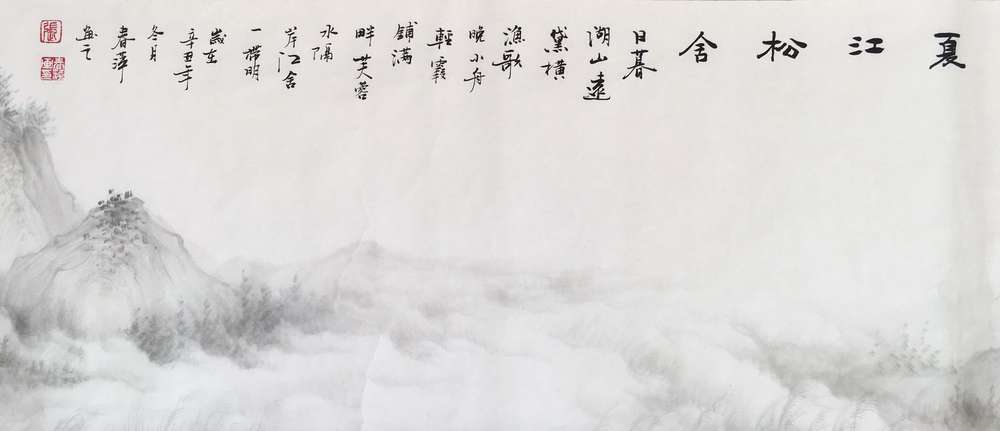 夏江松舍
日暮
湖山遠
黛橫
漁歌
晚小舟
輕霧
鋪满
畔芙蓉
水隔
岸江舍
一帶明
歲在
辛丑年
冬月
春萍
畫之
張